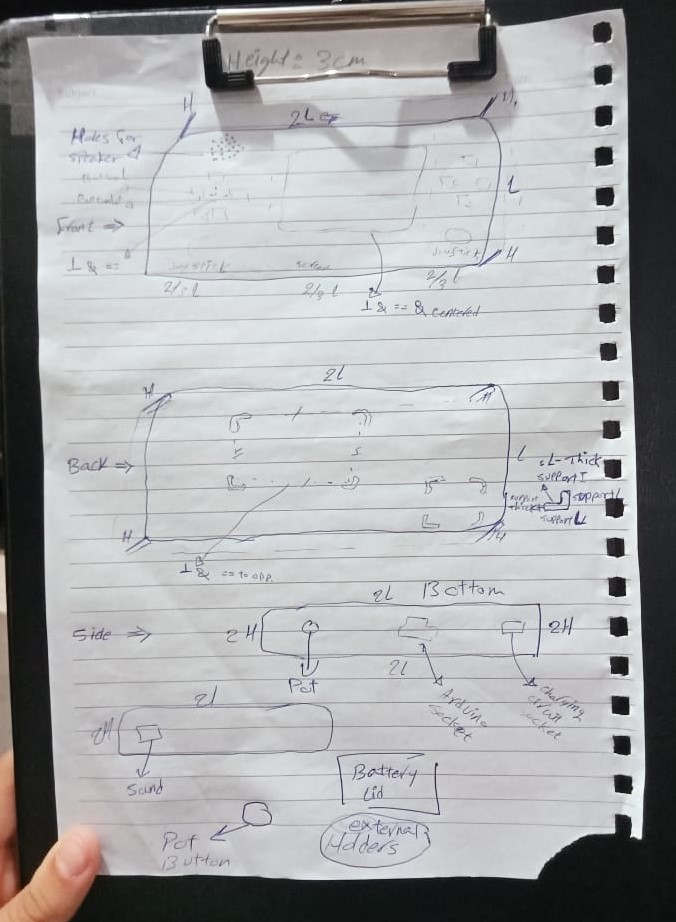 Height = 3cm
H
2L
H
Holes for
speaker
Front =>
L
H
⊥ & ==
joystick
screen
joystick
2/3 L
2/3 L
2/3 L
⊥ & == & centered
2L
H
H
Back =>
L
L-Thick
support I
support
support L
thick
support L
H
H
⊥ & == to opp.
2L
Bottom
Side =>
2H
2H
2L
Pot
Arduino
socket
charging
circuit
socket
2L
2H
Sound
Battery
Lid
Pot
Button
external
Holders